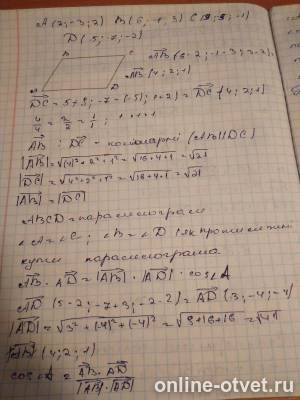 A(2;-3;2) B(6;-1;3) C(9;-5;-1)
D(5;-7;-2)
B C
AB(6-2;-1+3;3-2)
A D
AB(4;2;1)
DC = DC(4;2;1)
4/4 = 2/2 = 1/1
AB і DC - колінеарні (AB||DC)
|AB| = √(4)²+2²+1² = √16+4+1 = √21
|DC| = √4²+2²+1² = √16+4+1 = √21
|AB| = |DC|
ABCD = паралелограм
∠A = ∠C; ∠B = ∠D як протилежні
кути паралелограма
AB · AD = |AB| · |AD| · cos A
AD(5-2;-7+3;-2-2) = AD(3;-4;-4)
|AD| = √3²+(-4)²+(-4)² = √9+16+16 = √41
AB(4;2;1)
cos A = AB·AD / |AB|·|AD|
online-otvet.ru